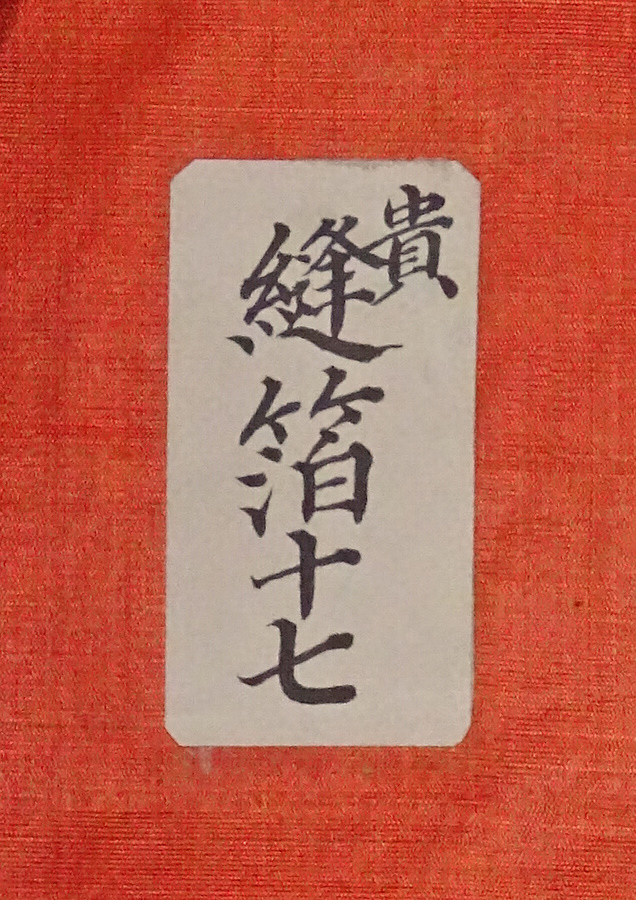 貴
縫箔十七